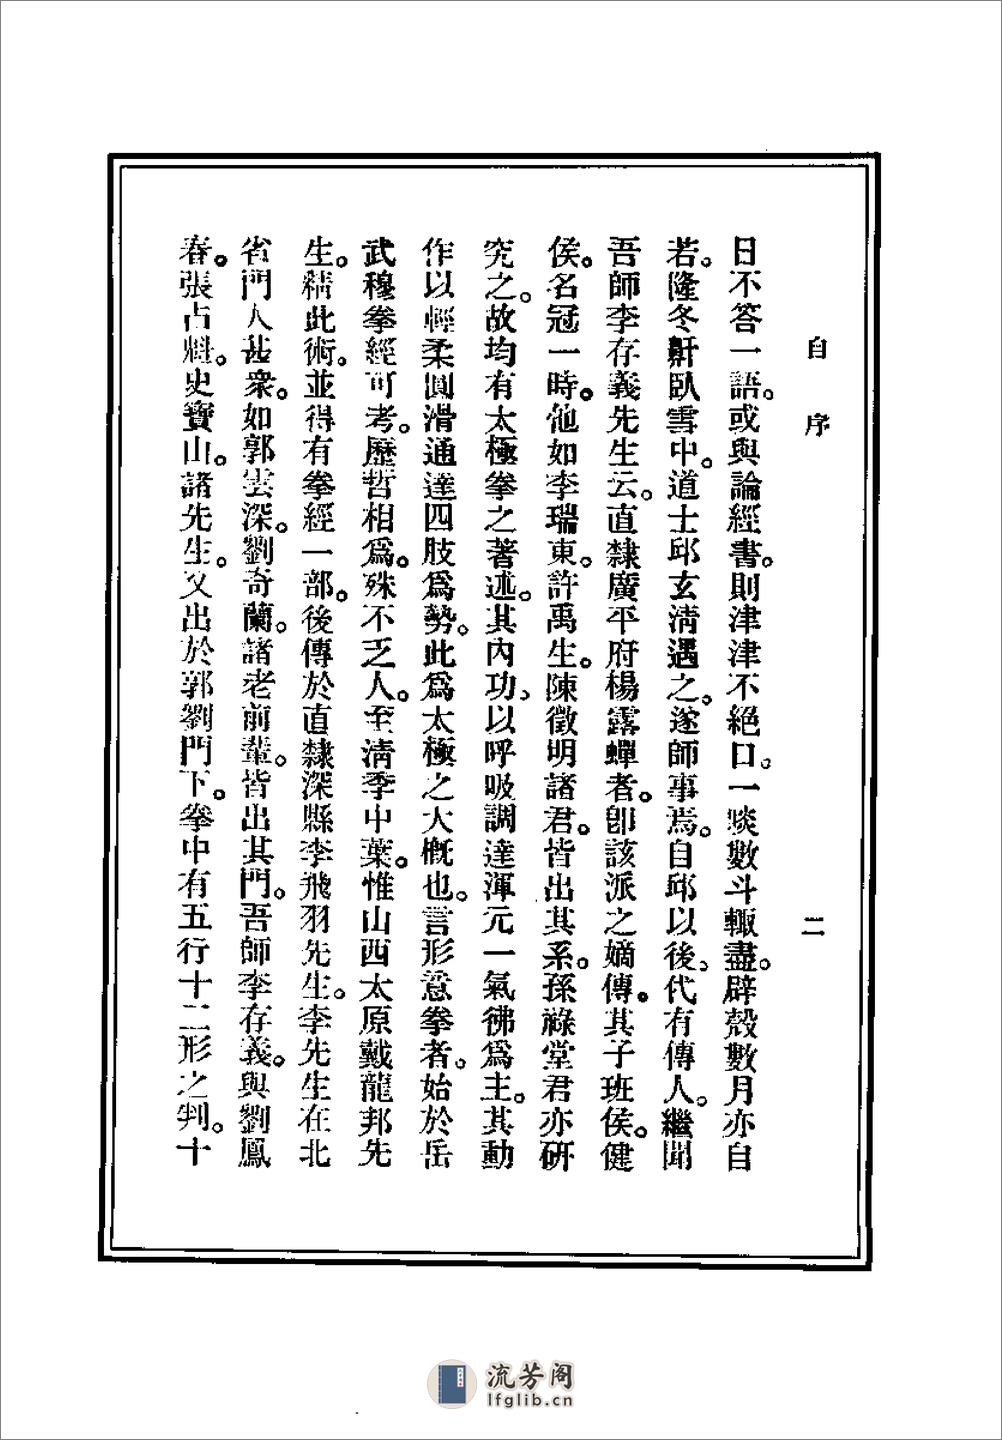 自序
二
日不答一語。或與論經書。則津津不絕口。一啖數斗輒盡。辟殼數月亦自
若。隆冬鼾臥雪中。道士邱玄淸遇之。遂師事焉。自邱以後、代有傳人。繼聞
吾師李存義先生云。直隸廣平府楊露蟬者。卽該派之嫡傳。其子班侯。健
侯。名冠一時。他如李瑞東。許禹生。陳徵明諸君。皆出其系。孫祿堂君亦硏
究之。故均有太極拳之著述。其內功、以呼吸調達渾元一氣彿爲主。其動
作以輕柔圓滑通達四肢爲勢。此爲太極之大槪也。言形意拳者。始於岳
武穆拳經可考。歷哲相爲。殊不乏人。至淸季中葉。惟山西太原戴龍邦先
生。精此術。並得有拳經一部。後傳於直隸深縣李飛羽先生。李先生在北
省門人甚衆。如郭雲深。劉奇蘭。諸老前輩。皆出其門。吾師李存義。與劉鳳
春。張占魁。史寶山。諸先生。又出於郭劉門下。拳中有五行十二形之判。十
流芳阁
lfglib.cn